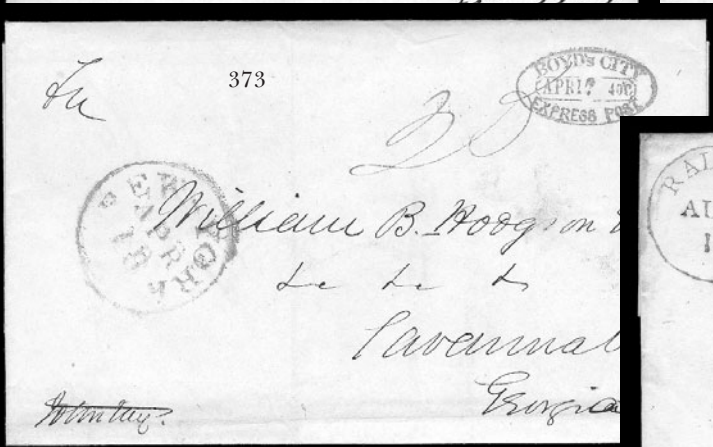 373
BOYD'S CITY
APR 17 4 O'C
EXPRESS POST
NEW YORK
APR
18
William B. Hodgson
&c &c &c
Savannah
Georgia
RAL
AU
1